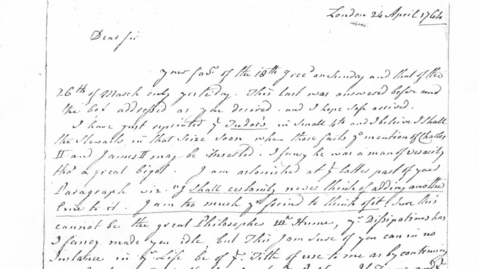 London 24 April 1764
Dear Sir
your fav. of the 18th I rec'd on Sunday and that of the
26th of March only yesterday. This last was answered before and
the box addressed as you desired. and I hope safe arrived.
I have just reprinted ye Tudors in Small 4to and I believe I shall
the Stewarts in that Size Soon when those facts you mention of Charles
II and James II may be Inserted. I fancy he was a man of veracity
tho' a great bigot. I am astonished at ye latter part of your
Paragraph viz. "I Shall certainly never think of adding another
Line to it. I am too much yr friend to think of it. Sure this
cannot be the great Philosopher Mr Hume, yr Dissipations has
I fancy made you idle, but This I am Sure of you can in no
Instance in yr Life be of ye Title of use to me as by continuing